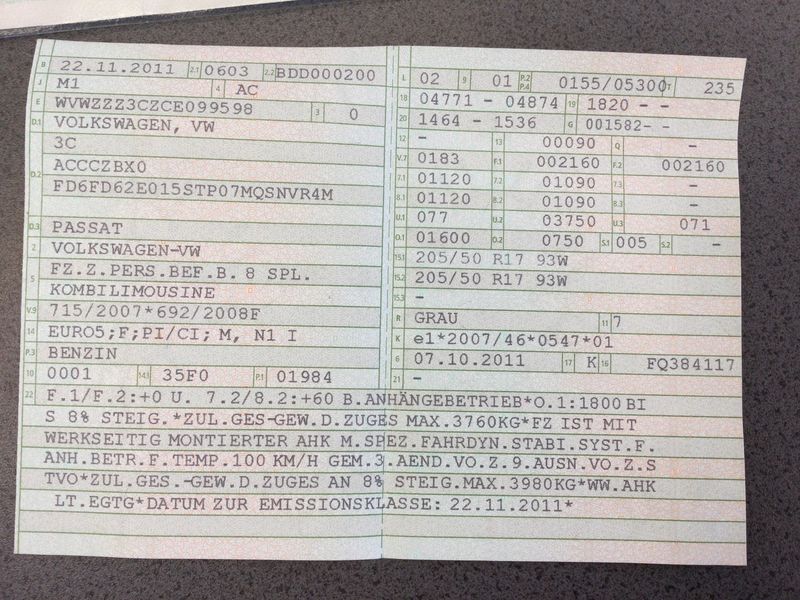 B 22.11.2011 2.1 0603 2.2 BDD000200
J M1 4 AC
E WVWZZZ3CZCE099598 3 0
D.1 VOLKSWAGEN, VW
3C
D.2 ACCCZBX0
FD6FD62E015STP07MQSNVR4M
D.3 PASSAT
2 VOLKSWAGEN-VW
5 FZ.Z.PERS.BEF.B. 8 SPL.
KOMBILIMOUSINE
V.9 715/2007*692/2008F
14 EURO5;F;PI/CI; M, N1 I
P.3 BENZIN
10 0001 14.1 35F0 P.1 01984
L 02 9 01 P.2 P.4 0155/05300 T 235
18 04771 - 04874 19 1820 - -
20 1464 - 1536 G 001582- -
12 - 13 00090 Q -
V.7 0183 F.1 002160 F.2 002160
7.1 01120 7.2 01090 7.3 -
8.1 01120 8.2 01090 8.3 -
U.1 077 U.2 03750 U.3 071
O.1 01600 O.2 0750 S.1 005 S.2 -
15.1 205/50 R17 93W
15.2 205/50 R17 93W
15.3 -
R GRAU 11 7
K e1*2007/46*0547*01
6 07.10.2011 17 K 16 FQ384117
21 -
22 F.1/F.2:+0 U. 7.2/8.2:+60 B.ANHÄNGEBETRIEB*O.1:1800 BI
S 8% STEIG.*ZUL.GES-GEW.D.ZUGES MAX.3760KG*FZ IST MIT
WERKSEITIG MONTIERTER AHK M.SPEZ.FAHRDYN.STABI.SYST.F.
ANH.BETR.F.TEMP.100 KM/H GEM.3.AEND.VO.Z.9.AUSN.VO.Z.S
TVO*ZUL.GES.-GEW.D.ZUGES AN 8% STEIG.MAX.3980KG*WW.AHK
LT.EGTG*DATUM ZUR EMISSIONSKLASSE: 22.11.2011*